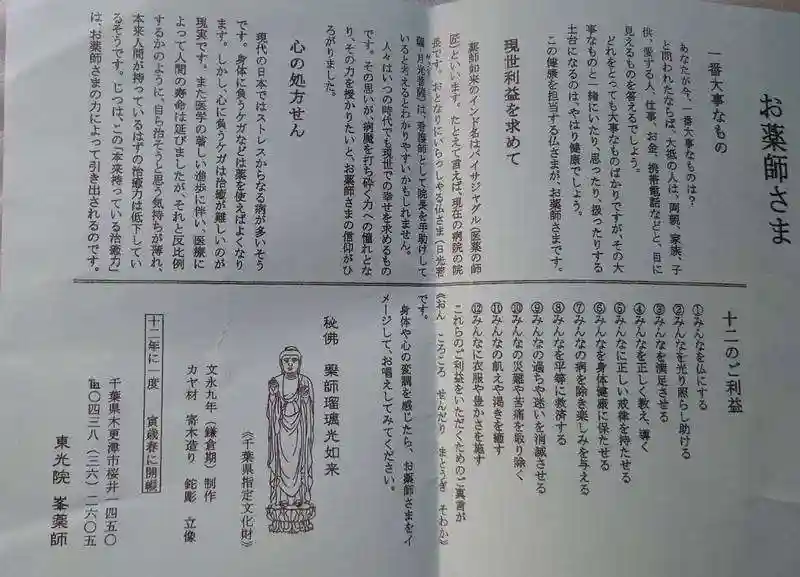 お薬師さま
一番大事なもの
あなたが今、一番大事なものは?
と問われたならば、大抵の人は、両親、家族、子
供、愛する人、仕事、お金、携帯電話などと、目に
見えるものを答えるでしょう。
どれをとっても大事なものばかりですが、その大
事なものと一緒にいたり、思ったり、扱ったりする
土台になるのは、やはり健康でしょう。
この健康を担当する仏さまが、お薬師さまです。
現世利益を求めて
薬師如来のインド名はバイサジャグル(医薬の師
匠)といいます。たとえて言えば、現在の病院の院
長です。おとなりにいらっしゃる仏さま(日光菩
薩・月光菩薩)は、看護師として院長を手助けして
いると考えるとわかりやすいかもしれません。
人々はいつの時代でも現世での幸せを求めるもの
です。その思いが、病魔を打ち砕く力への憧れとな
り、その力を授かりたいと、お薬師さまの信仰がひ
ろがりました。
心の処方せん
現代の日本ではストレスからなる病が多いそう
です。身体に負うケガなどは薬を使えばよくなり
ます。しかし、心に負うケガは治療が難しいのが
現実です。また医学の著しい進歩に伴い、医療に
よって人間の寿命は延びましたが、それと反比例
するかのように、自ら治そうと思う気持ちが薄れ、
本来人間が持っているはずの治癒力は低下してい
るそうです。じつは、この「本来持っている治癒力」
は、お薬師さまの力によって引き出されるのです。
十二のご利益
①みんなを仏にする
②みんなを光り照らし助ける
③みんなを満足させる
④みんなを正しく教え、導く
⑤みんなに正しい戒律を持たせる
⑥みんなを身体健康に保たせる
⑦みんなの病を除き楽しみを与える
⑧みんなを平等に救済する
⑨みんなの過ちや迷いを消滅させる
⑩みんなの災難や苦痛を取り除く
⑪みんなの飢えや渇きを癒す
⑫みんなに衣服や豊かさを施す
これらのご利益をいただくためのご真言が
《おん ころころ せんだり まとうぎ そわか》
です。
身体や心の変調を感じたら、お薬師さまをイ
メージして、お唱えしてみてください。
秘佛 薬師瑠璃光如来
《千葉県指定文化財》
文永九年(鎌倉期)制作
カヤ材 寄木造り 鉈彫 立像
十二年に一度 寅歳春に開帳
千葉県木更津市桜井 四五〇
℡〇四三八(三六)二六〇五
東光院 峯薬師